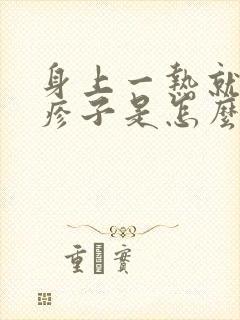 身上一熱就
疹子是怎麼
重實